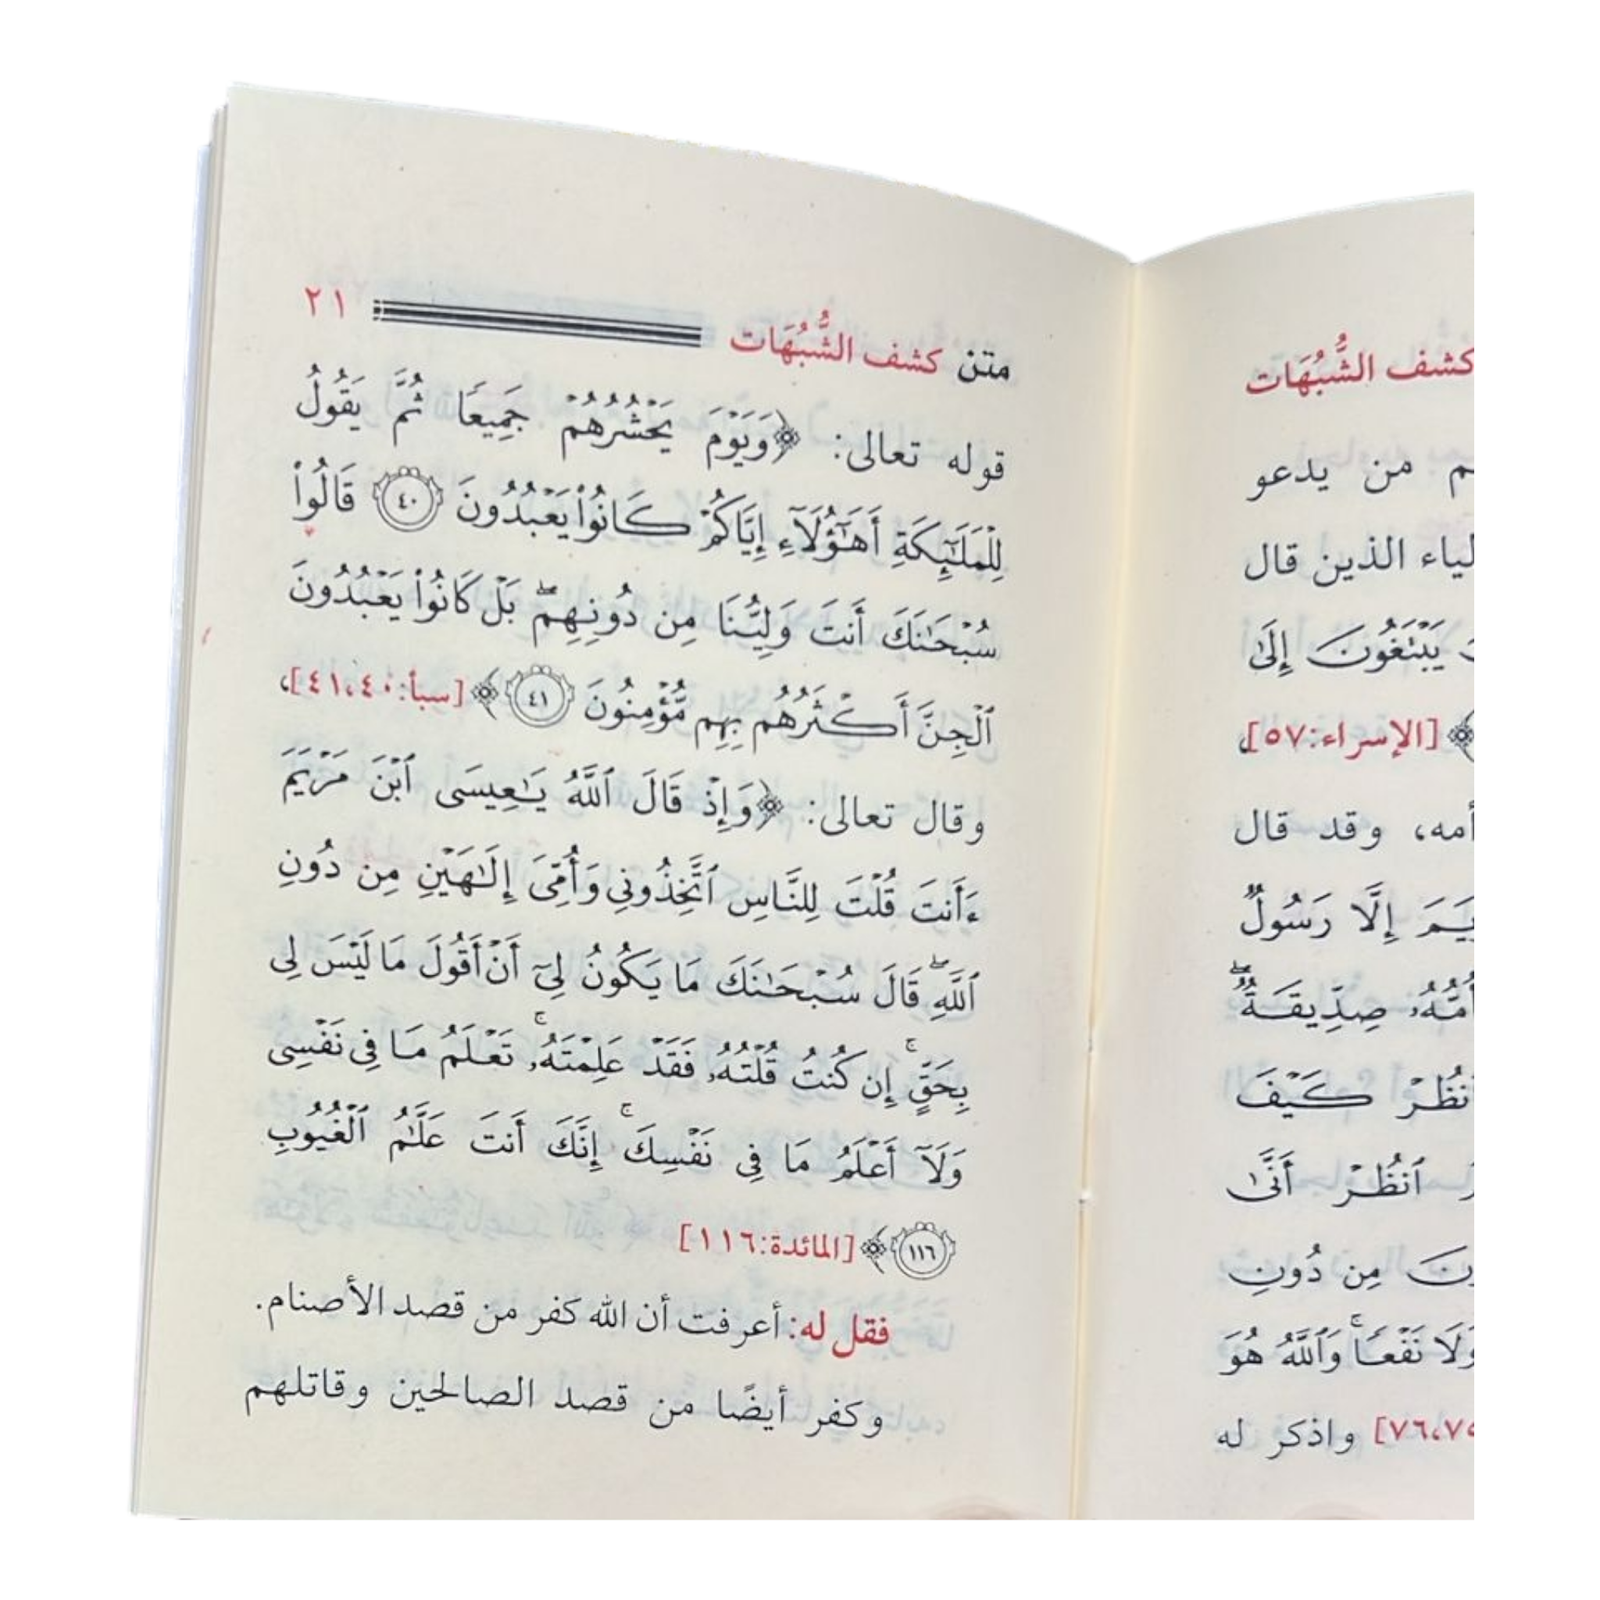 كشف الشُّبُهَات
من يدعو
الذين قال
يَبْتَغُونَ إِلَىٰ
﴾ [الإسراء:٥٧]،
أمه، وقد قال
إِلَّا رَسُولٌ
صِدِّيقَةٌۖ
كَيْفَ
ٱنظُرْ أَنَّىٰ
مِن دُونِ
وَلَا نَفْعًاۚ وَٱللَّهُ هُوَ
٧٦،٧٥] واذكر له
متن كشف الشُّبُهَات ٢١
قوله تعالى: ﴿وَيَوْمَ يَحْشُرُهُمْ جَمِيعًا ثُمَّ يَقُولُ
لِلْمَلَٰٓئِكَةِ أَهَٰٓؤُلَآءِ إِيَّاكُمْ كَانُوا۟ يَعْبُدُونَ ٤٠ قَالُوا۟
سُبْحَٰنَكَ أَنتَ وَلِيُّنَا مِن دُونِهِمۖ بَلْ كَانُوا۟ يَعْبُدُونَ
ٱلْجِنَّ أَكْثَرُهُم بِهِم مُّؤْمِنُونَ ٤١﴾ [سبأ:٤١،٤٠]،
وقال تعالى: ﴿وَإِذْ قَالَ ٱللَّهُ يَٰعِيسَى ٱبْنَ مَرْيَمَ
ءَأَنتَ قُلْتَ لِلنَّاسِ ٱتَّخِذُونِي وَأُمِّيَ إِلَٰهَيْنِ مِن دُونِ
ٱللَّهِۖ قَالَ سُبْحَٰنَكَ مَا يَكُونُ لِيٓ أَنْ أَقُولَ مَا لَيْسَ لِي
بِحَقٍّۚ إِن كُنتُ قُلْتُهُۥ فَقَدْ عَلِمْتَهُۥۚ تَعْلَمُ مَا فِي نَفْسِي
وَلَآ أَعْلَمُ مَا فِي نَفْسِكَۚ إِنَّكَ أَنتَ عَلَّٰمُ ٱلْغُيُوبِ
١١٦﴾ [المائدة:١١٦]
فقل له: أعرفت أن الله كفر من قصد الأصنام.
وكفر أيضًا من قصد الصالحين وقاتلهم